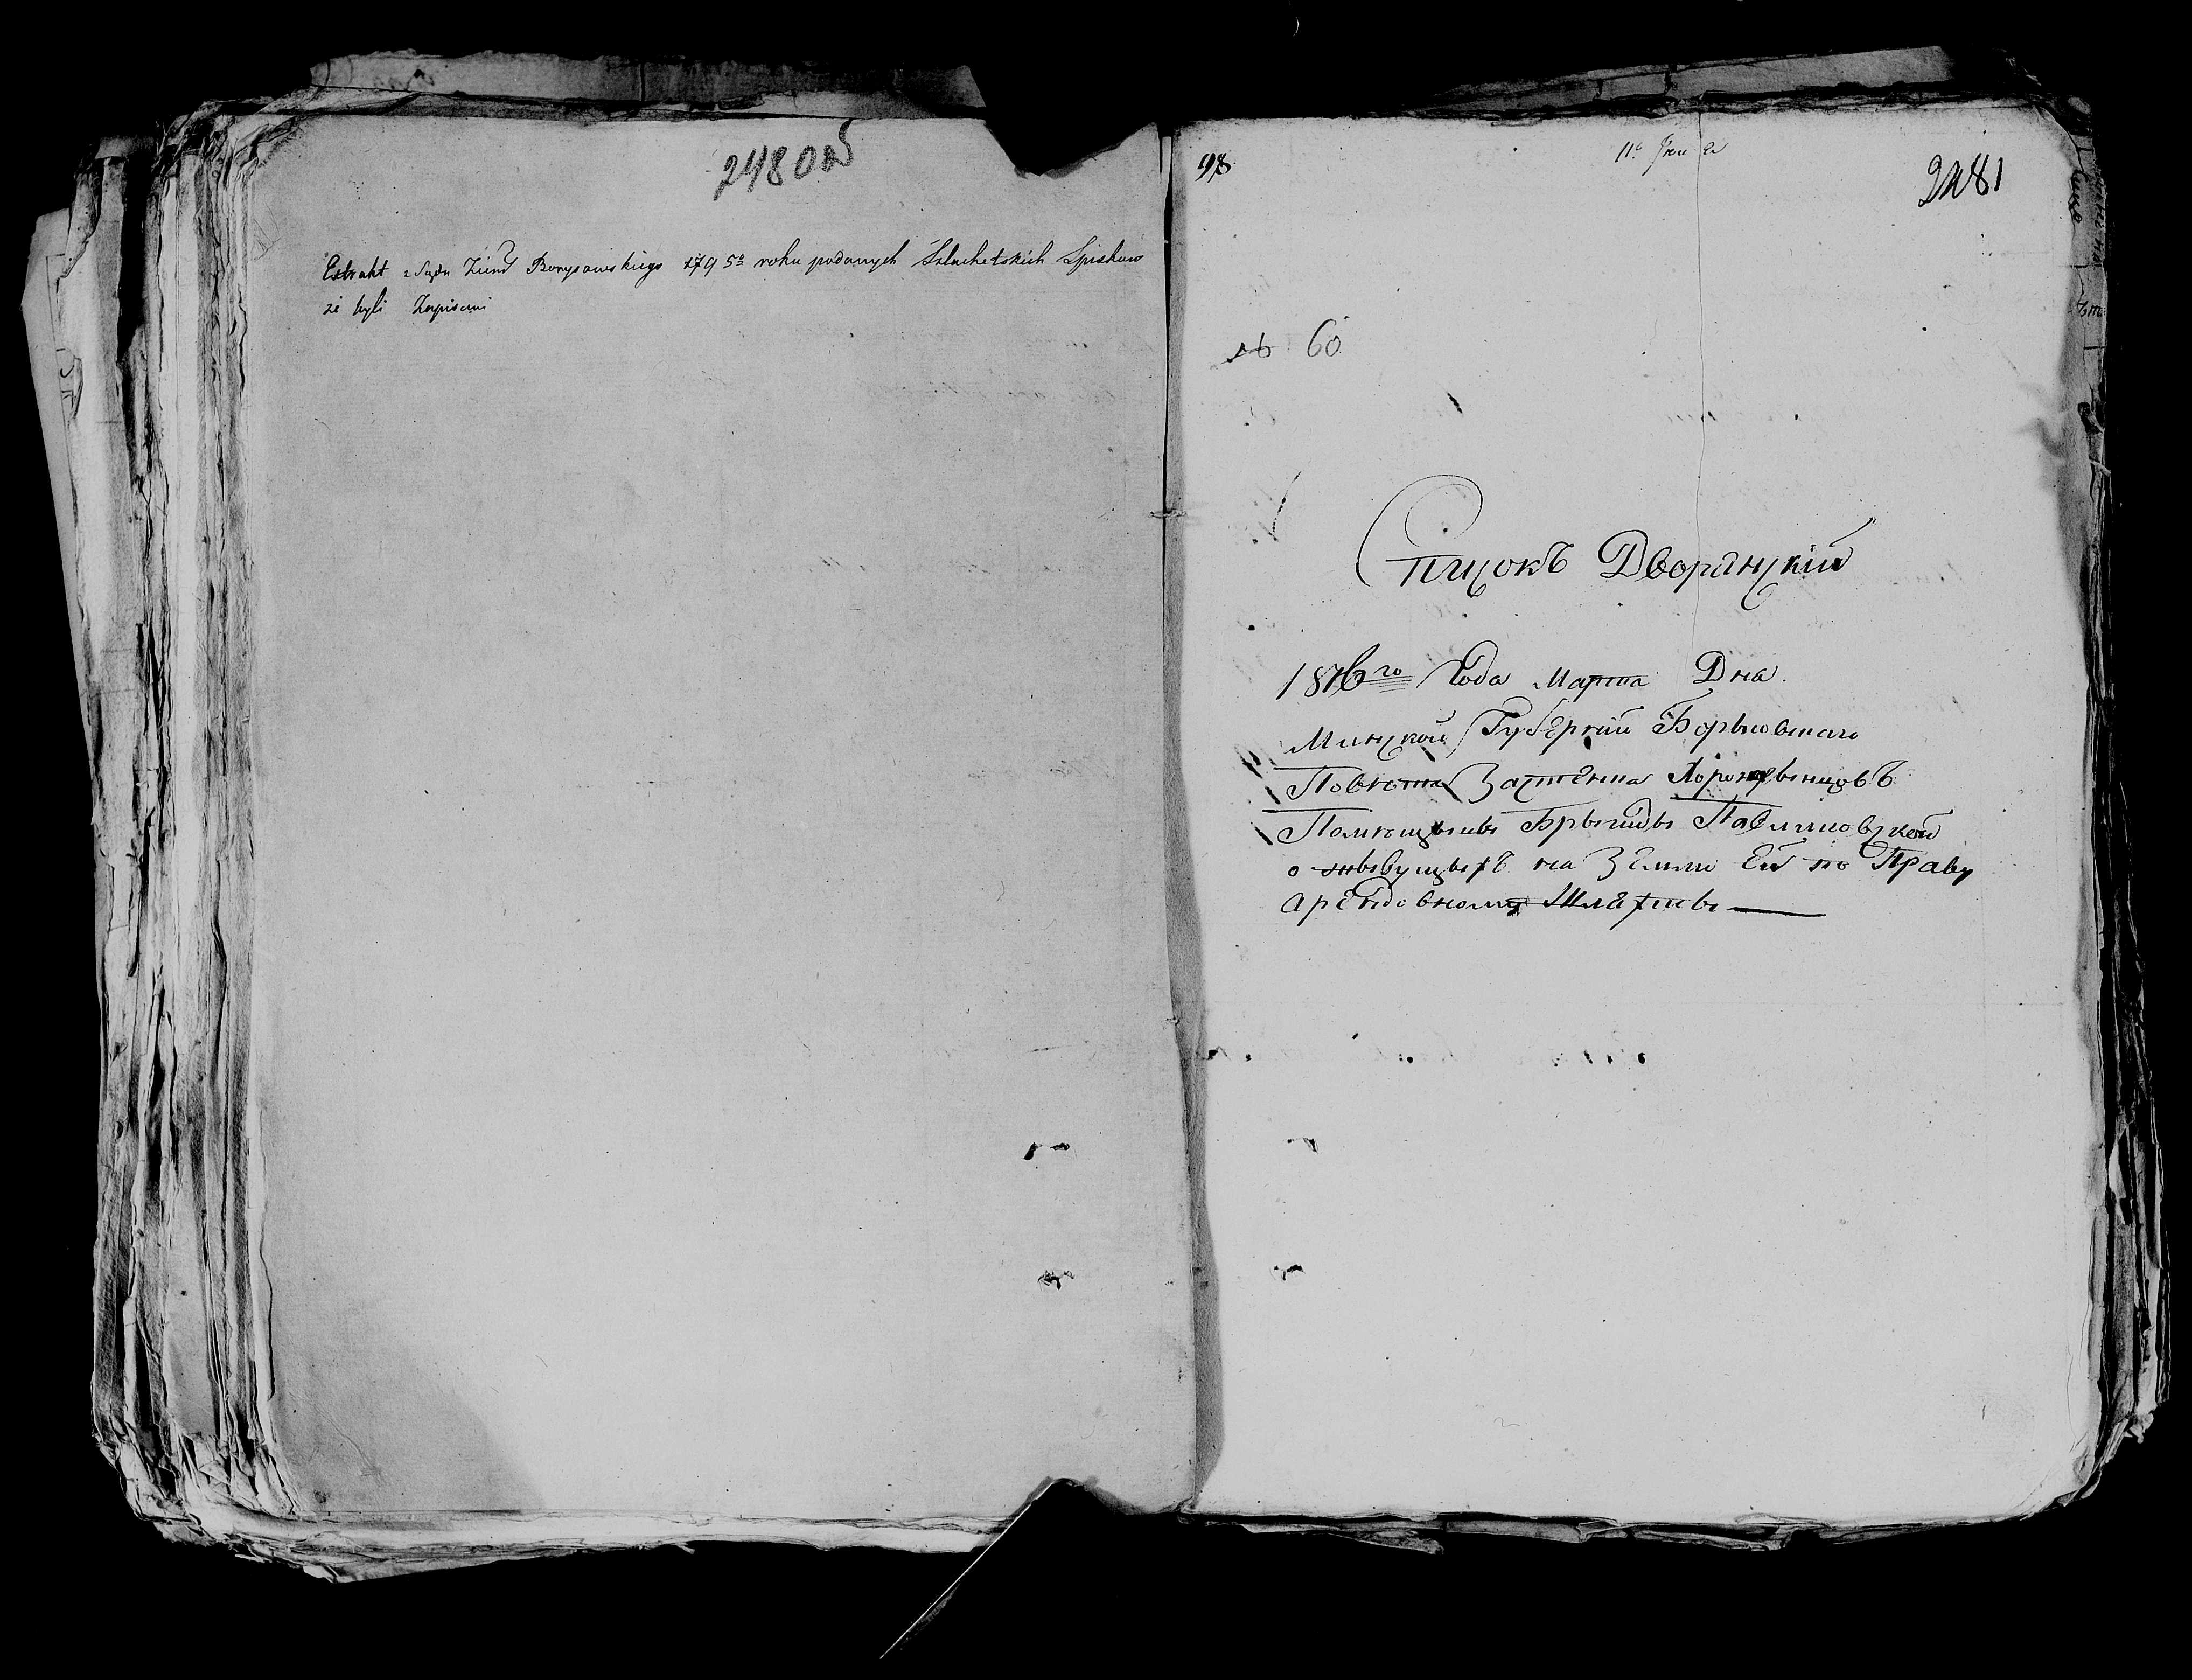 2480об
Extrakt z Sądu Ziems Borysowskiego 1795° roku podanych Szlachetskich Spiskow
że byli Zapisani
98
2481
№ 60
Списокъ Дворянскій
1816го Года Марта Дня
Минской Губерніи Борысовскаго
Повѣта Застенка
Помѣщыцы Павликовской
о жывущыхъ на Земли Ей по Праву
арендовному Шляхты